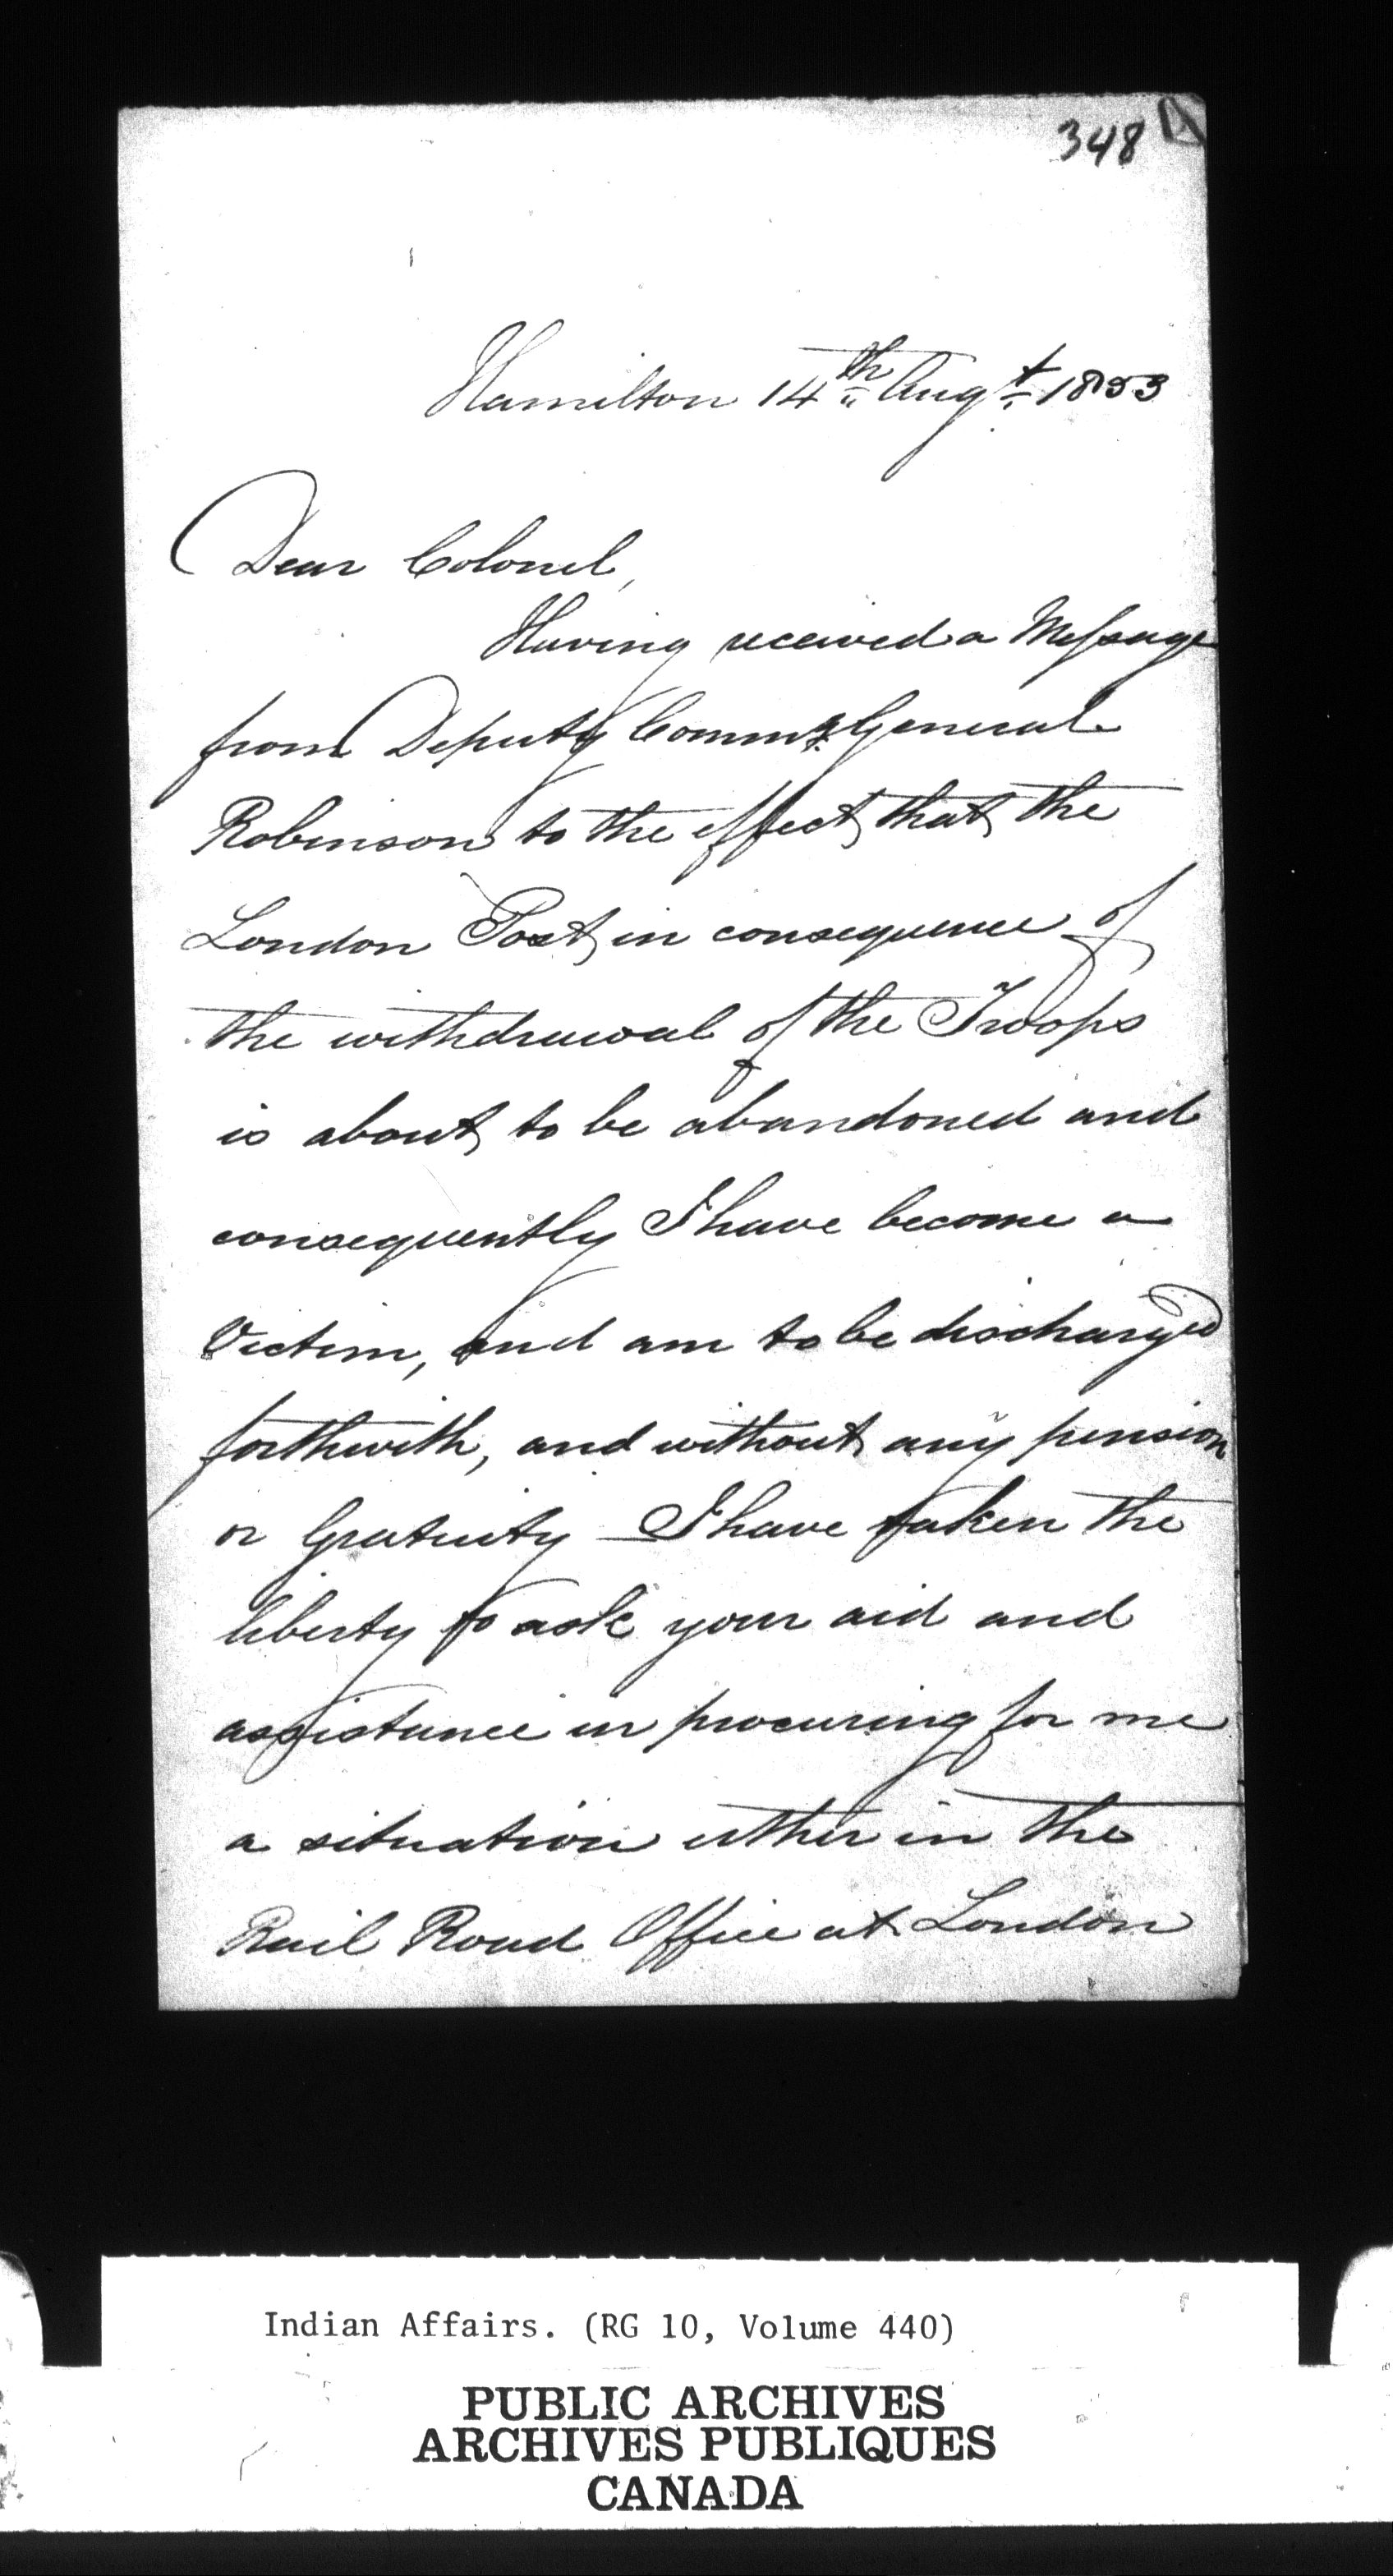 348
Hamilton 14th Augt 1853
Dear Colonel,
Having received a Message
from Deputy Commy General
Robinson to the effect that the
London Post in consequence of
the withdrawal of the Troops
is about to be abandoned and
consequently I have become a
Victim, and am to be discharged
forthwith, and without any pension
or Gratuity I have taken the
liberty to ask your aid and
assistance in procuring for me
a situation either in the
Rail Road Office at London
Indian Affairs. (RG 10, Volume 440)
PUBLIC ARCHIVES
ARCHIVES PUBLIQUES
CANADA